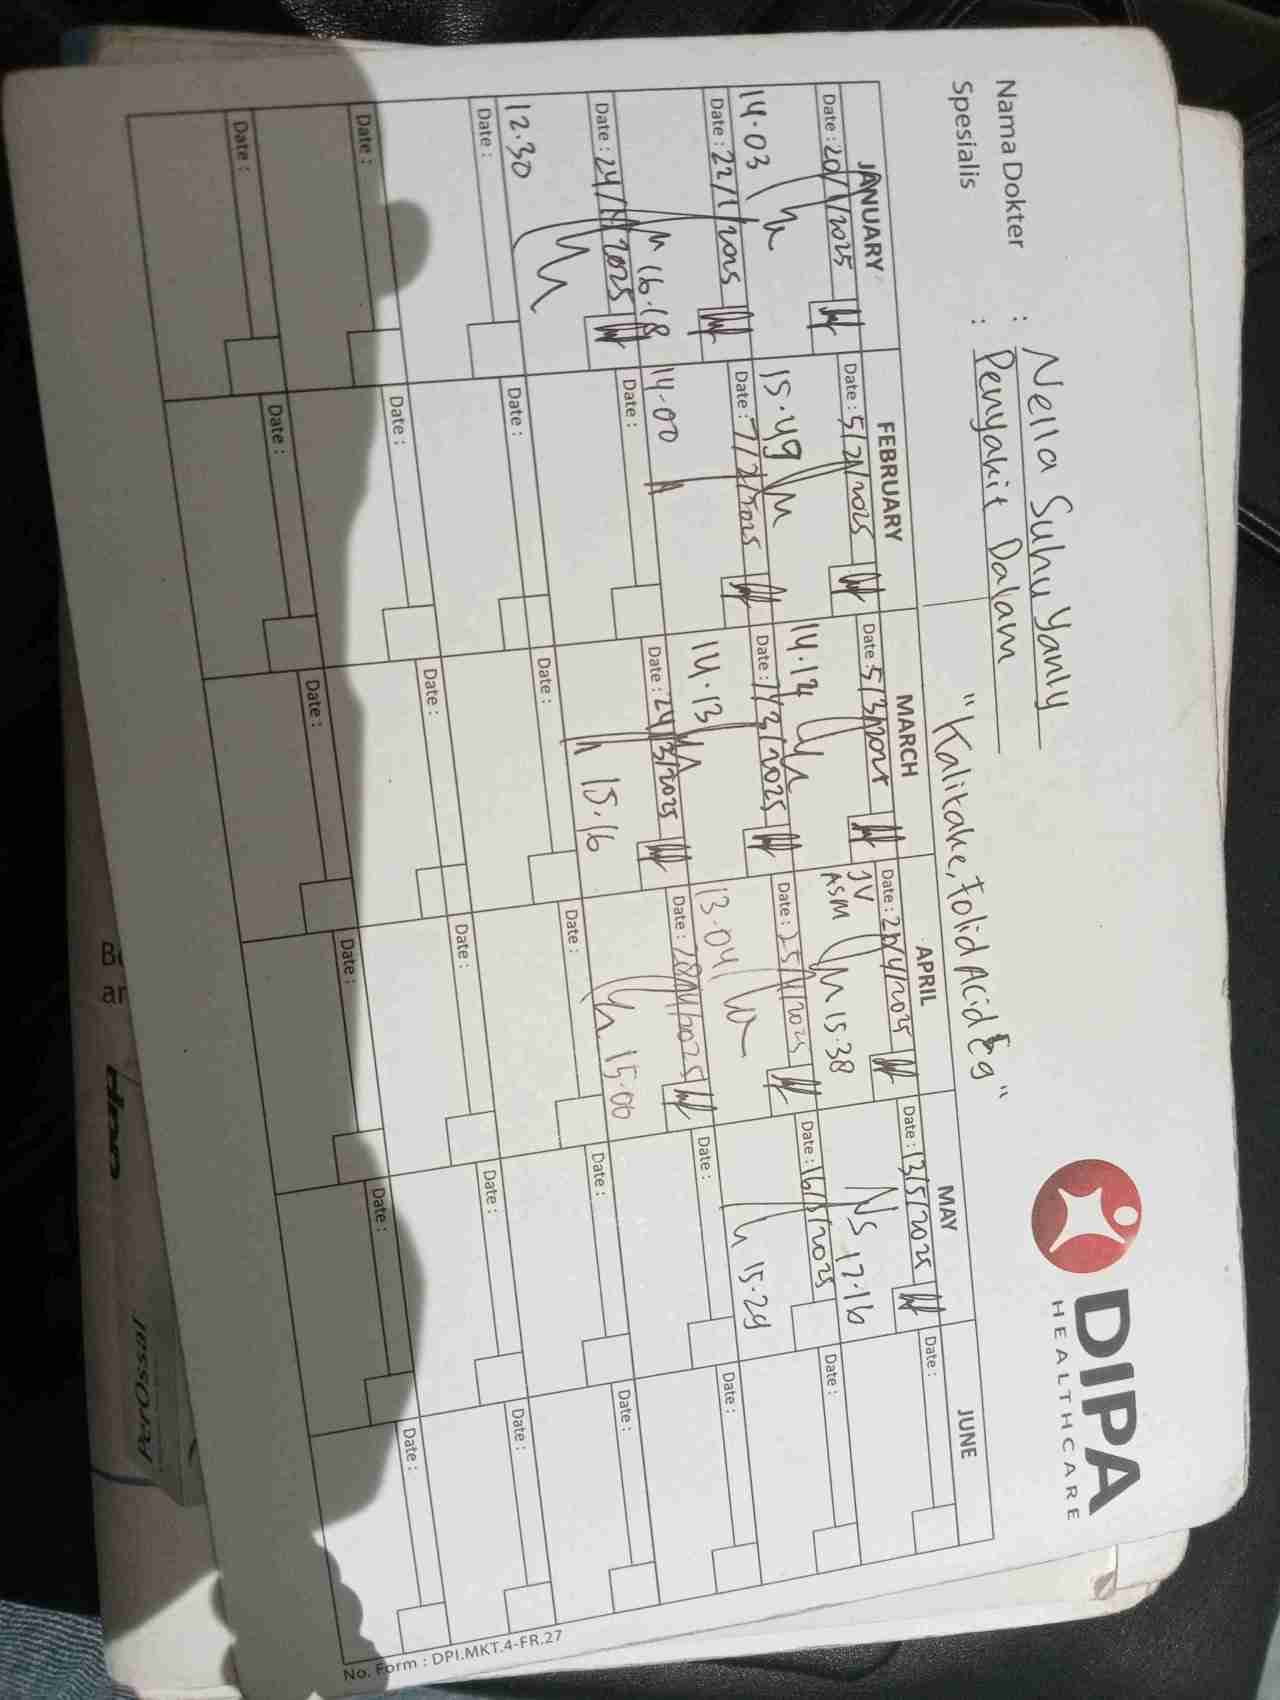 DIPA
HEALTHCARE
Nama Dokter : Nella Suhu Yanly
Spesialis : Penyakit Dalam
"Kalitake, Folid Acid Eg"
JANUARY FEBRUARY MARCH APRIL MAY JUNE
Date : 20/1/2025 Date : 5/2/2025 Date : 5/3/2025 Date : 2/4/2025 Date : 13/5/2025 Date :
14.03 15.49 14.14 JV ASM 15.38 NS 17.16
Date : 22/1/2025 Date : 7/2/2025 Date : /3/2025 Date : 25/4/2025 Date : 16/5/2025 Date :
16.18 14.00 14.13 13.04 15.29
Date : 24/1/2025 Date : Date : 24/3/2025 Date : 28/4/2025 Date : Date :
12.30 15.16 15.00
Date : Date : Date : Date : Date : Date :
Date : Date : Date : Date : Date : Date :
Date : Date : Date : Date : Date : Date :
No. Form : DPI.MKT.4-FR.27
PerOssal